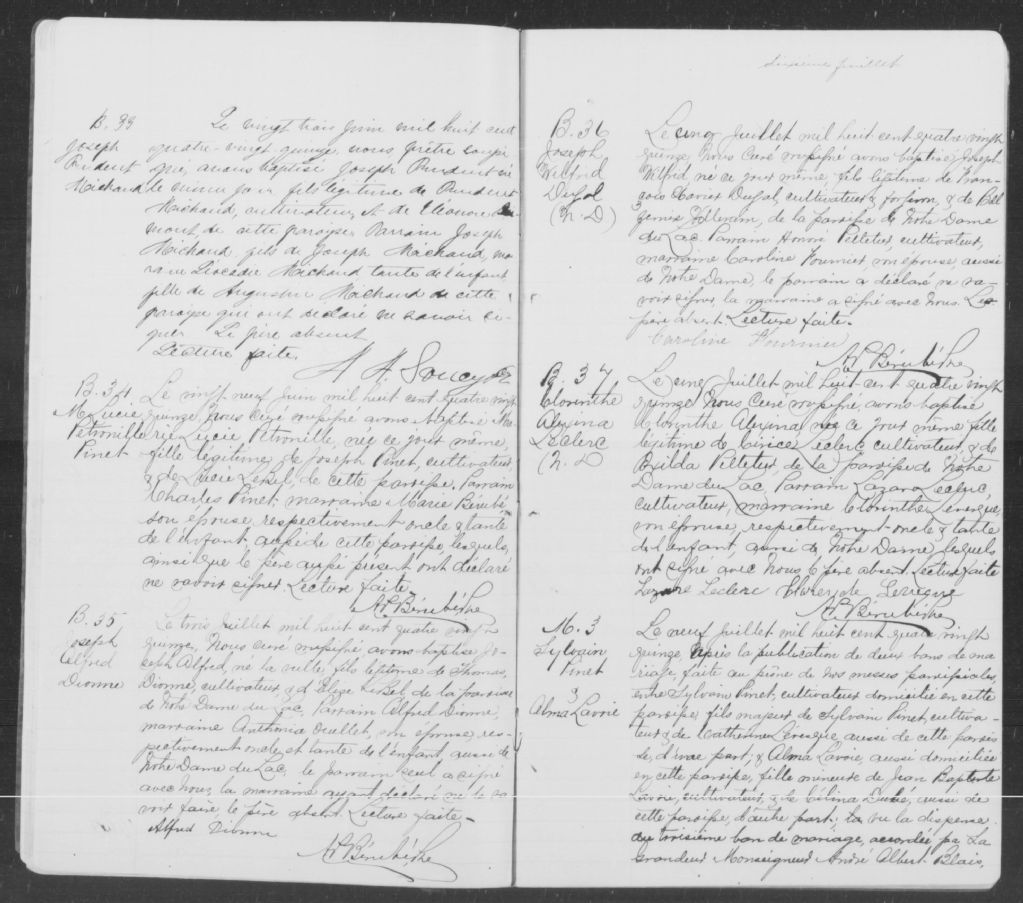 B. 33
Joseph
Prudent
Michaud
Le vingt trois Juin mil huit cent
quatre-vingt-quinze, nous prêtre soussi-
gné, avons baptisé Joseph Prudent né
le même jour fils légitime de Prudent
Michaud, cultivateur, et de Eléonore
mont de cette paroisse. Parrain Joseph
Michaud, fils de Joseph Michaud, mar
raine Michaud tante de l'enfant
fille de Augustin Michaud de cette
paroisse qui ont déclaré ne savoir si-
gner Le père absent
Lecture faite.
Soucy Ptr
B. 34
M. Lucie
Petronille
Pinet
Le vingt neuf Juin mil huit cent quatre vingt
quinze, Nous Curé soussigné avons baptisé Ma
rie Lucie Petronille, née ce jour même,
fille légitime de Joseph Pinet, cultivateur
& de Lucie Lebel, de cette paroisse. Parrain
Charles Pinet, marraine Marie Bérubé
son épouse, respectivement oncle & tante
de l'enfant, aussi de cette paroisse, lesquels,
ainsi que le père aussi présent ont déclaré
ne savoir signer. Lecture faite.
Bérubé Ptre
B. 35
Joseph
Alfred
Dionne
Le trois Juillet mil huit cent quatre vingt
quinze, Nous Curé soussigné avons baptisé Jo-
seph Alfred, né la veille, fils légitime de Thomas
Dionne, cultivateur & d'Elize Lebel de la paroisse
de Notre Dame du Lac. Parrain Alfred Dionne,
marraine Anthonia Ouellet, son épouse, res-
pectivement oncle et tante de l'enfant, aussi de
Notre Dame du Lac, le parrain seul a signé
avec nous, la marraine ayant déclaré ne le sa
voir faire le père absent Lecture faite-
Alfred Dionne
Bérubé Ptre
Sixième feuillet
B. 36
Joseph
Wilfred
Dufol
(N. D)
Le cinq Juillet mil huit cent quatre vingt
quinze, Nous Curé soussigné avons baptisé Joseph
Wilfred né ce jour même fils légitime de Fran-
çois Xavier cultivateur & forgeron, & de
de la paroisse de Notre Dame
du Lac. Parrain Honoré Pelletier, cultivateur,
marraine Caroline Fournier, son épouse, aussi
de Notre Dame, le parrain a déclaré ne sa-
voir signer, la marraine a signé avec nous. Le
père absent. Lecture faite.
Caroline Fournier
Bérubé Ptre
B. 37
Clorinthe
Alexina
Leclerc
(N. D
Le cinq Juillet mil huit cent quatre vingt
quinze Nous Curé soussigné, avons baptisé
Clorinthe Alexina née ce jour même fille
légitime de Leclerc cultivateur, & de
Exilda Pelletier de la paroisse de Notre
Dame du Lac, Parrain Lazare Leclerc,
cultivateur, marraine Clorinthe Levesque,
son épouse, respectivement oncle & tante
de l'enfant, aussi de Notre Dame, lesquels
ont signé avec nous le père absent. Lecture faite
Lazare Leclerc Levesque
Bérubé Ptre
M. 3
Sylvain
Pinet
&
Alma Lavoie
Le neuf Juillet mil huit cent quatre vingt
quinze, après la publication de deux bans de ma
riage faite au prône de nos messes paroissiales,
entre Sylvain Pinet, cultivateur domicilié en cette
paroisse, fils majeur de Sylvain Pinet, cultiva-
teur & de Catherine Levesque aussi de cette parois
se, d'une part; & Alma Lavoie, aussi domiciliée
en cette paroisse, fille mineure de Jean Baptiste
Lavoie, cultivateur, & de Célina Dubé, aussi de
cette paroisse, d'autre part; vu la dispense
du troisième ban de mariage, accordée par Sa
Grandeur Monseigneur André Albert Blais,